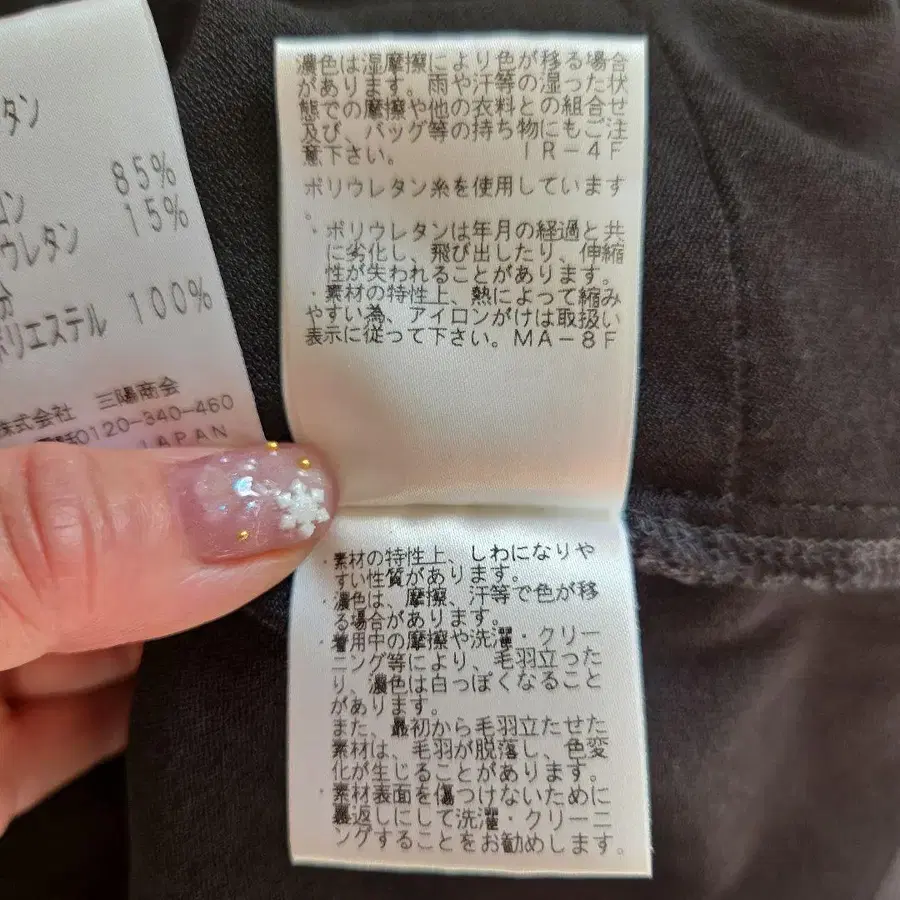 タン
85%
ン 15%
ウレタン
分
ポリエステル 100%
株式会社 三陽商会
0120-340-460
JAPAN
濃色は湿摩擦により色が移る場合
があります。雨や汗等の湿った状
態での摩擦や他の衣料との組合せ
及び、バッグ等の持ち物にもご注
意下さい。 IR-4F
ポリウレタン糸を使用しています
。
・ポリウレタンは年月の経過と共
に劣化し、飛び出したり、伸縮
性が失われることがあります。
・素材の特性上、熱によって縮み
やすい為、アイロンがけは取扱い
表示に従って下さい。MA-8F
・素材の特性上、しわになりや
すい性質があります。
・濃色は、摩擦、汗等で色が移
る場合があります。
・着用中の摩擦や洗濯・クリー
ニング等により、毛羽立った
り、濃色は白っぽくなること
があります。
また、最初から毛羽立たせた
素材は、毛羽が脱落し、色変
化が生じることがあります。
・素材表面を傷つけないために
裏返しにして洗濯・クリーニ
ングすることをお勧めします。